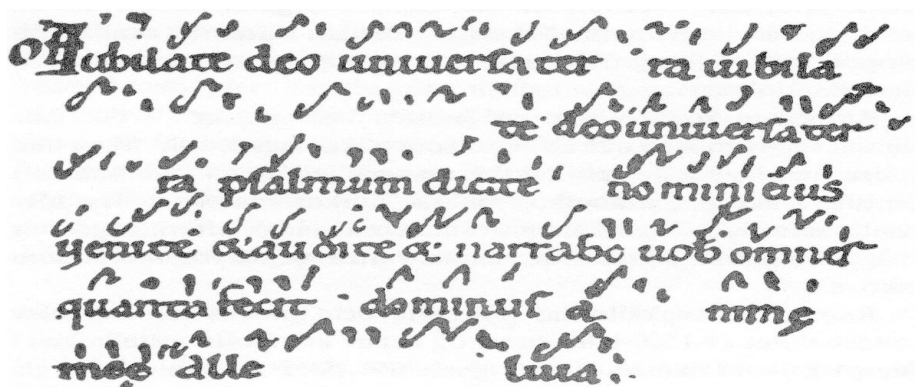 OF Iubilate deo uniuersa ter ra iubila
te deo uniuersa ter
ra psalmum dicite no mini eius
uenite & audite & narrabo uob omnes
quanta fecit dominus a nimę
meę alle luia.